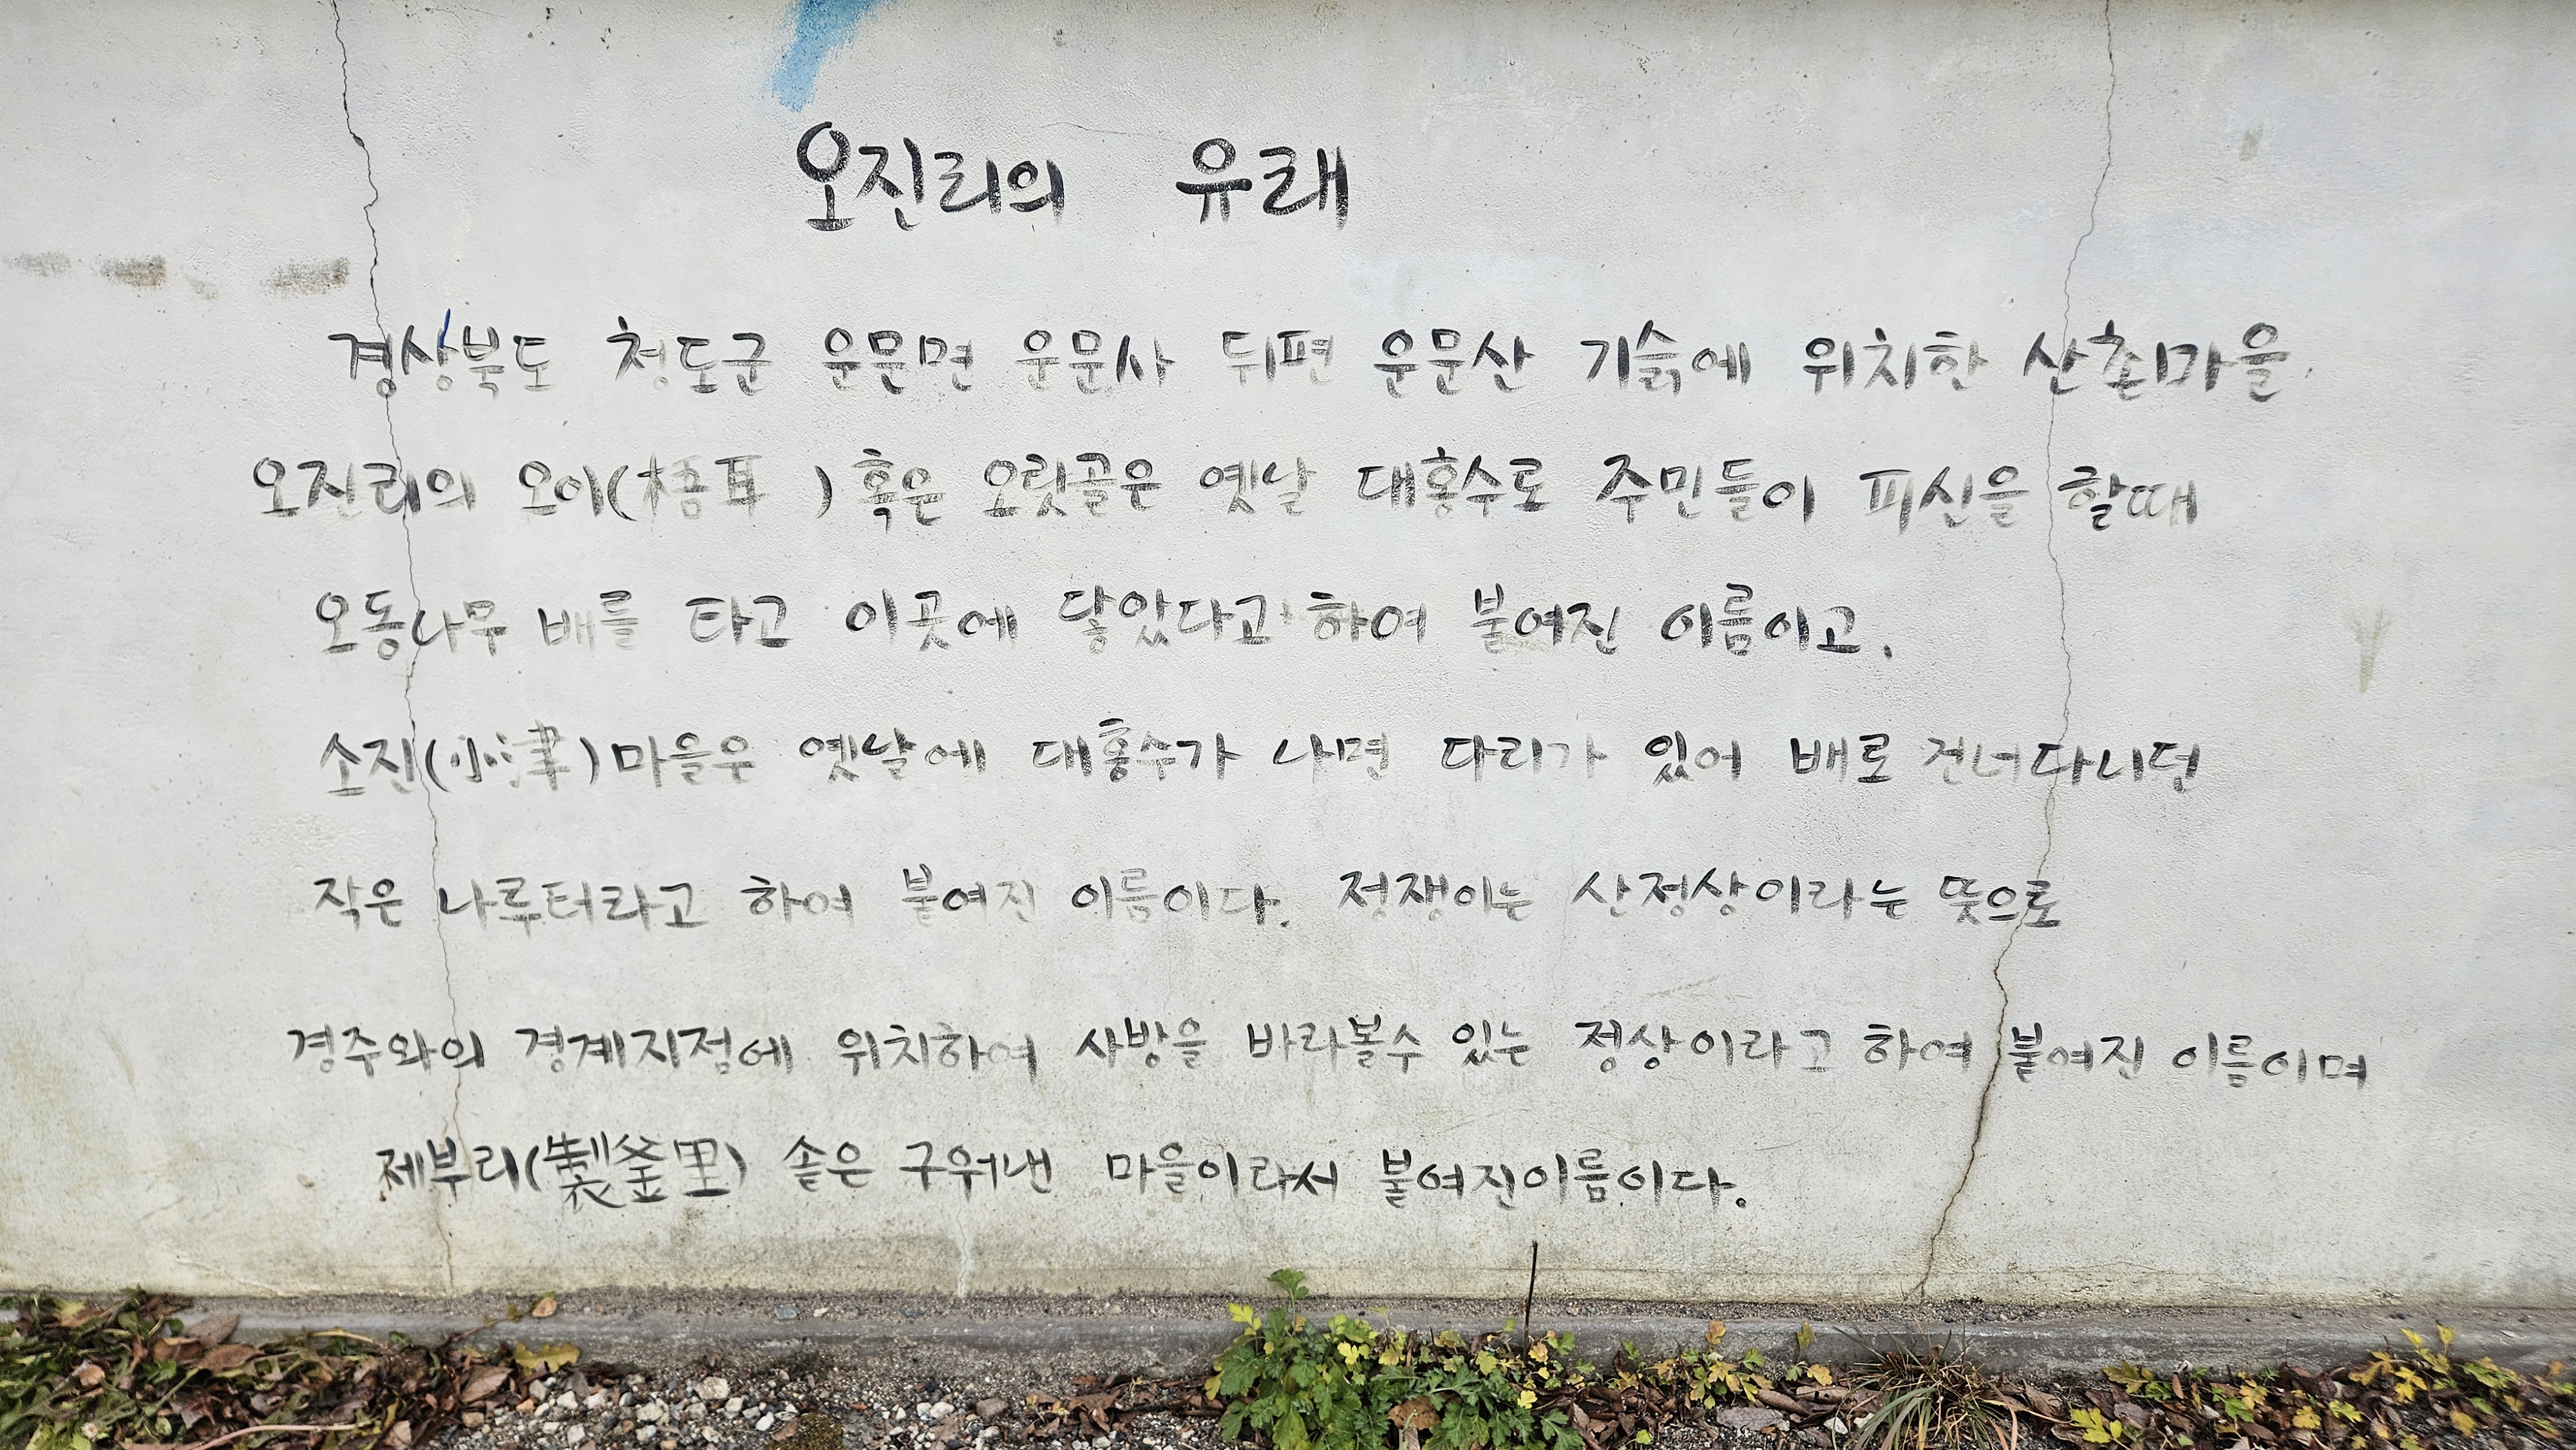 오진리의 유래
경상북도 청도군 운문면 운문사 뒤편 운문산 기슭에 위치한 산촌마을
오진리의 오이(梧耳 ) 혹은 오릿골은 옛날 대홍수로 주민들이 피신을 할때
오동나무 배를 타고 이곳에 닿았다고 하여 불여진 이름이고.
소진(小津)마을은 옛날에 대홍수가 나면 다리가 있어 배로 건너다니던
작은 나루터라고 하여 불여진 이름이다. 정쟁이는 산정상이라는 뜻으로
경주와의 경계지점에 위치하여 사방을 바라볼수 있는 정상이라고 하여 불여진 이름이며
제부리(製釜里) 솥은 구워낸 마을이라서 붙여진이름이다.